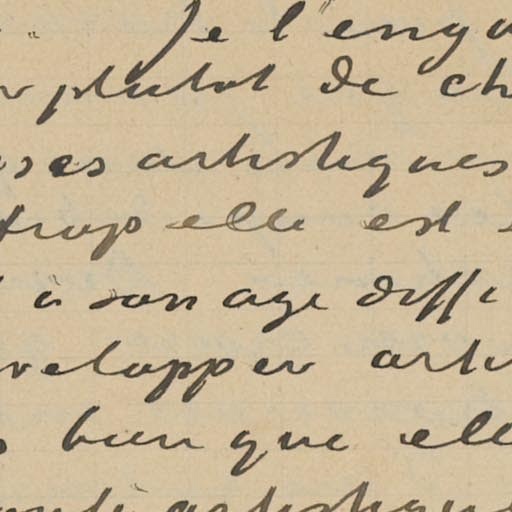 Je l'enga
r plutot de ch
ses artistiques
trop elle est s
à son age diffi
velopper arti
s bien que elle
artistique